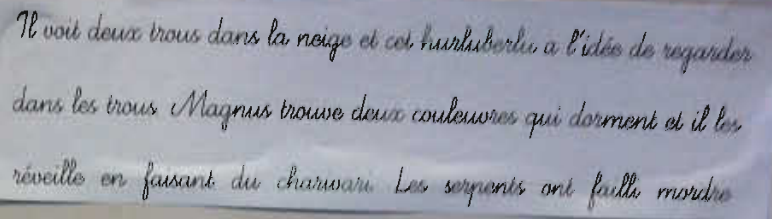 Il voit deux trous dans la neige et cet hurluberlu a l'idée de regarder
dans les trous Magnus trouve deux couleuvres qui dorment et il les
réveille en faisant du charivari. Les serpents ont failli mordre